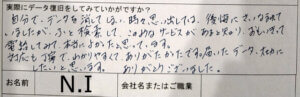 実際にデータ復旧をしてみていかがですか?
自分で、データを消してしまい、時々、思い出しては、後悔に、さいなまれて
いましたが、ふと検索して、このようなサービスがあると知り、おもいきって
電話してみて、本当によかったと思っています。
対応も丁寧で、わかりやすくて、ありがたかったです。届いたデータ、大切に
したいと思います。 ありがとうございました。
お名前 N.I 会社名またはご職業